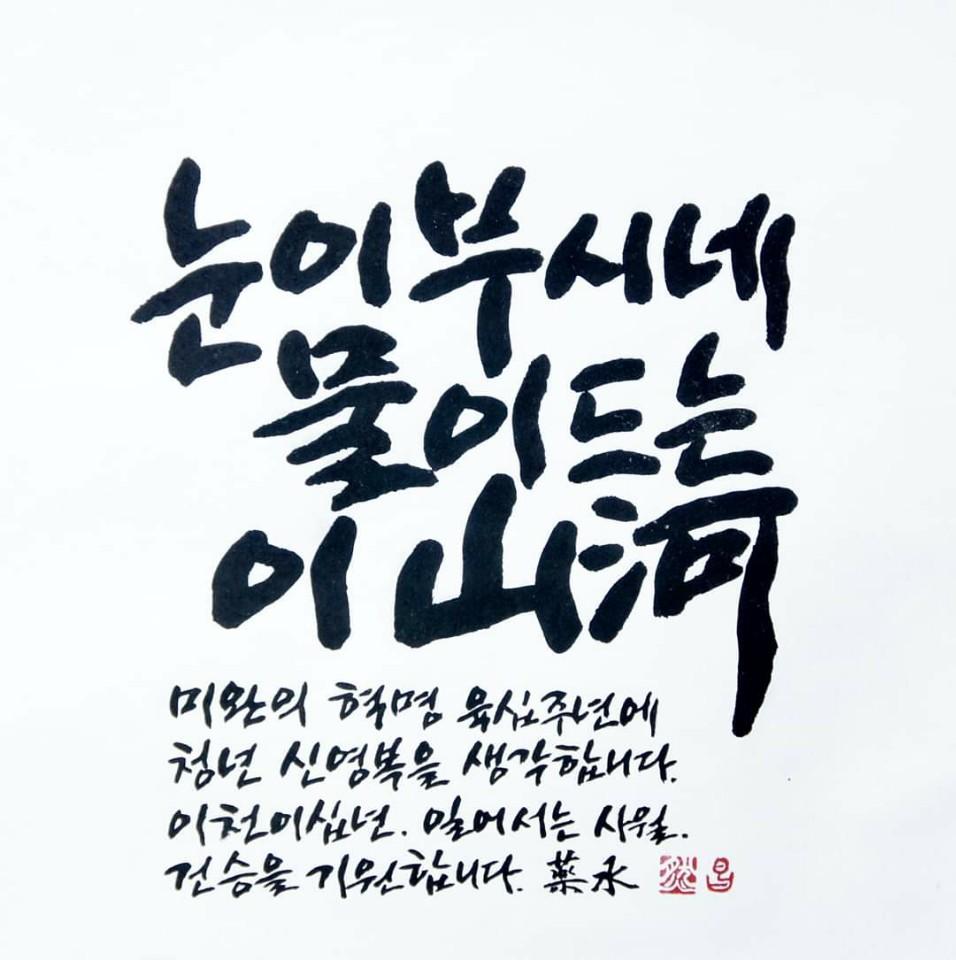 눈이부시네
물이드는
이山河
미완의 혁명 육십주년에
청년 신영복을 생각합니다.
이천이십년. 일어서는 사월.
건승을 기원합니다. 藥水
昌